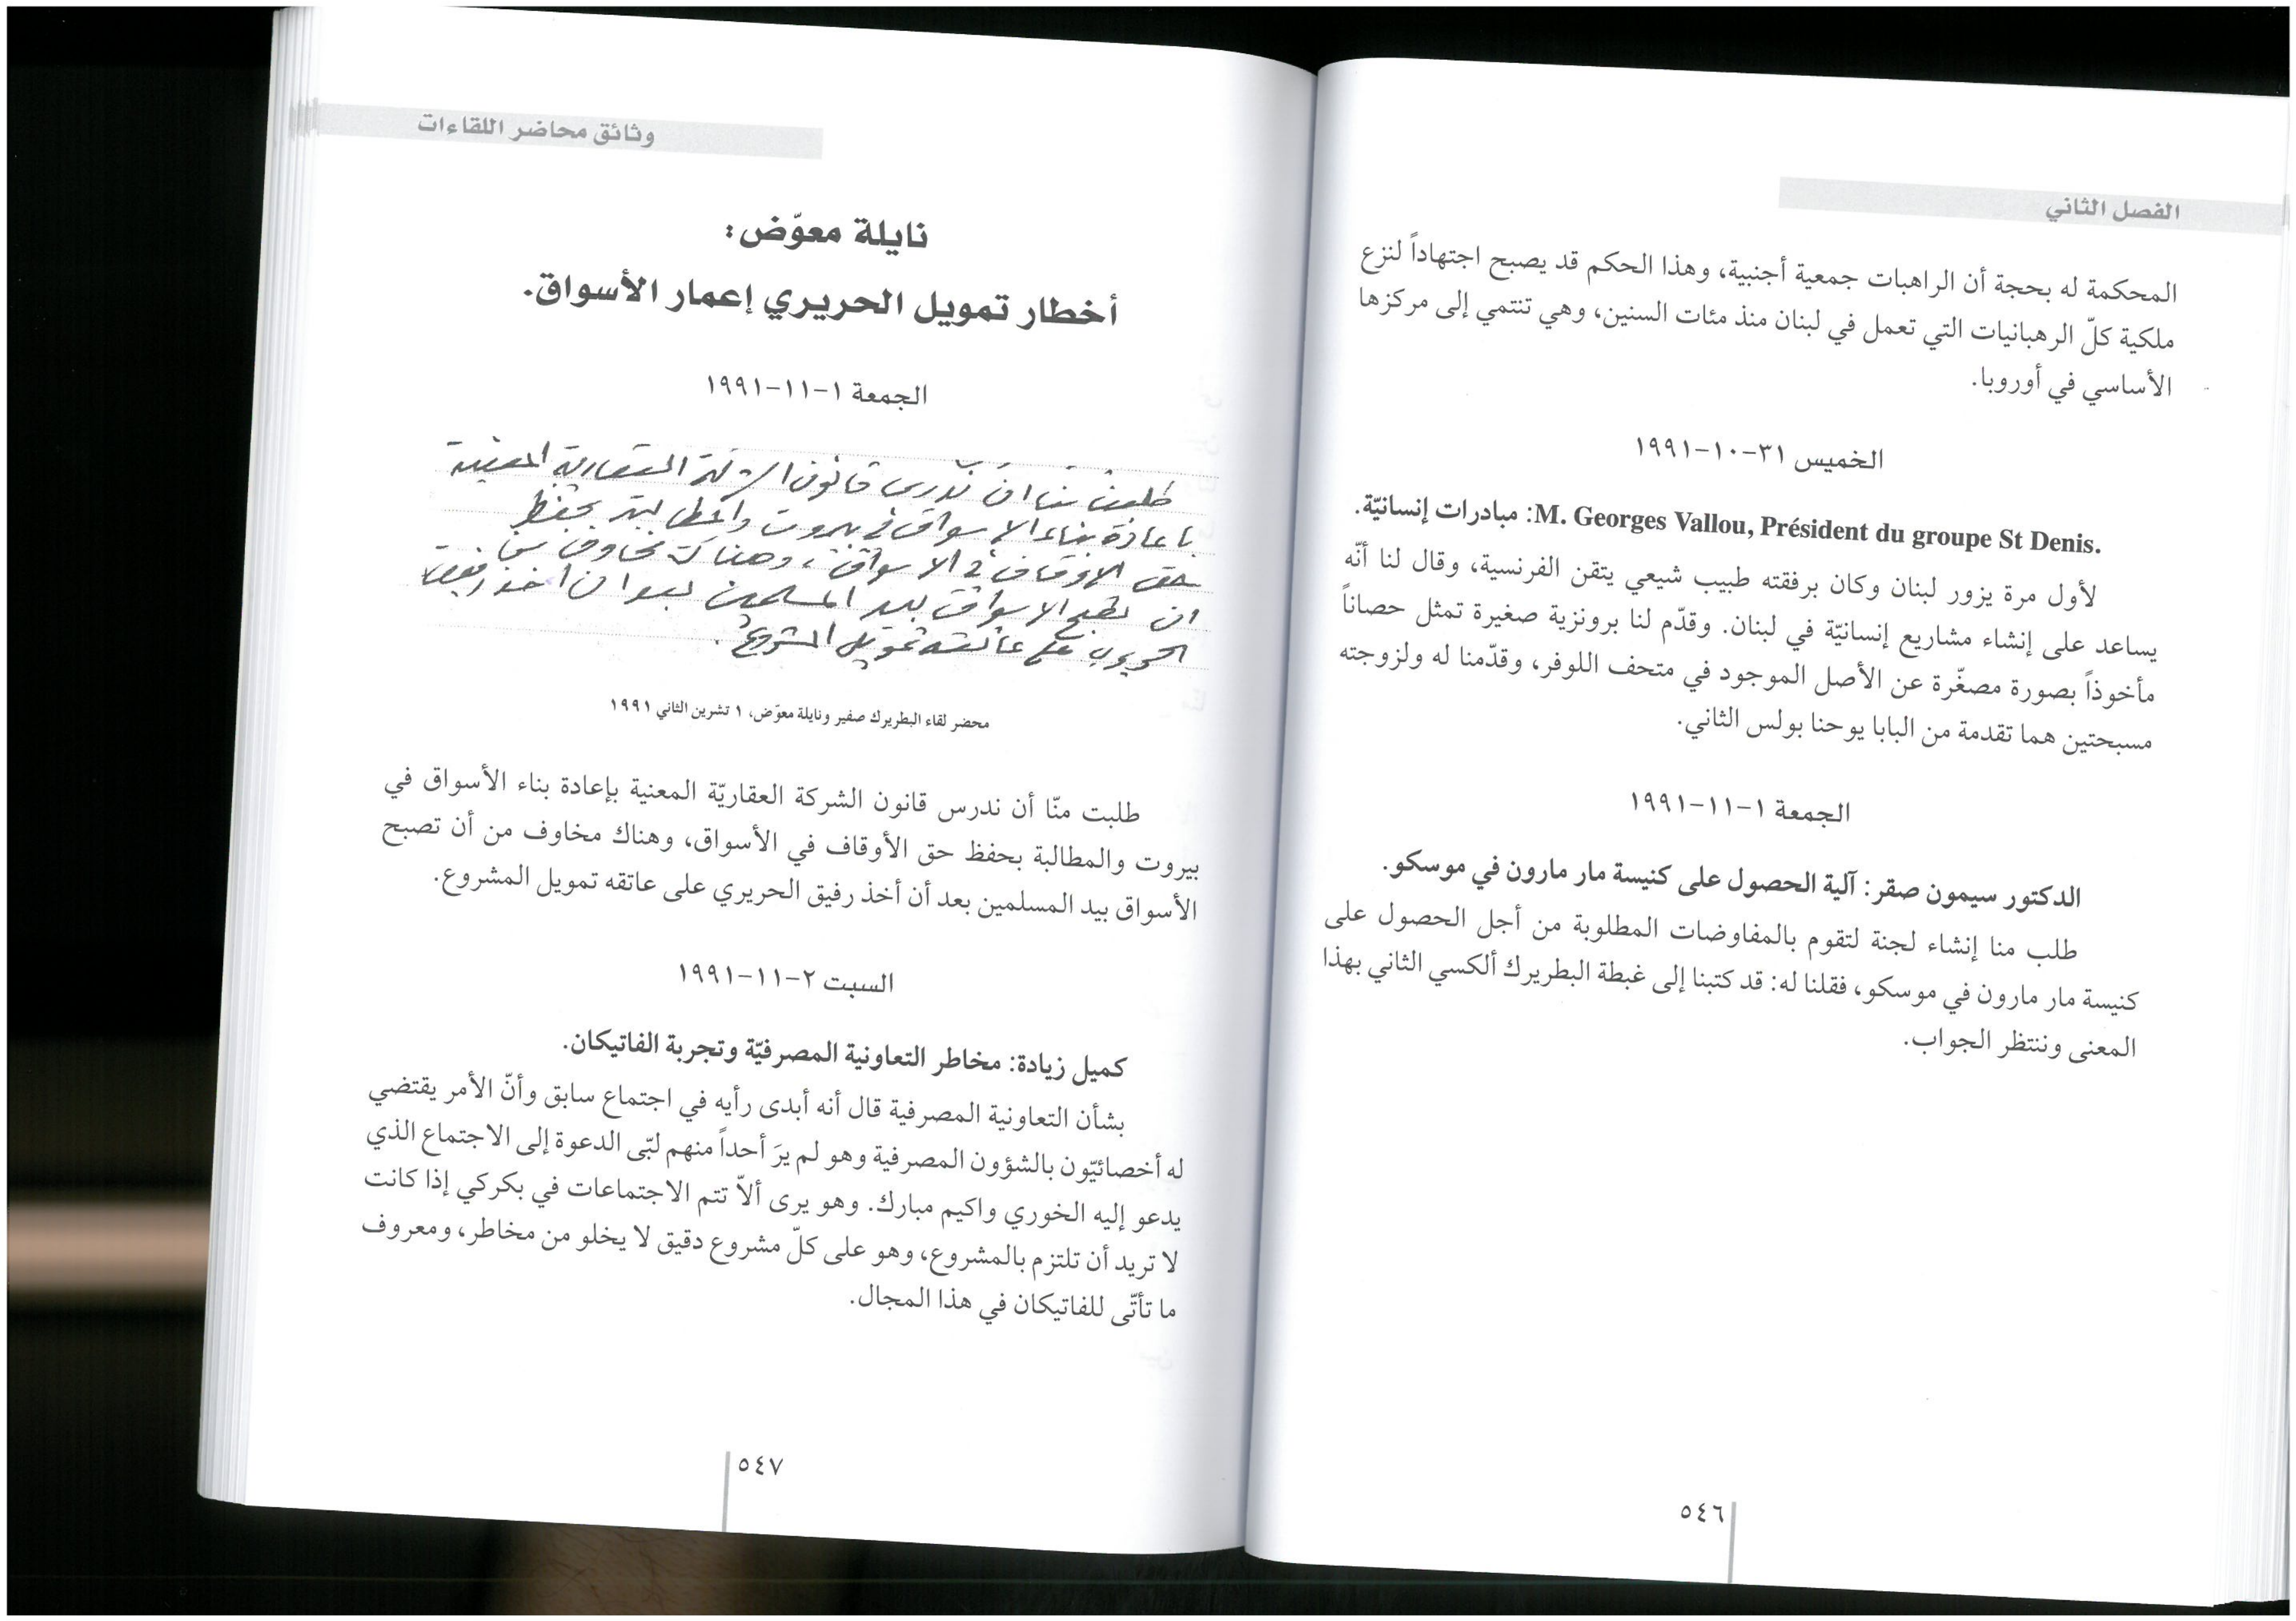 الفصل الثاني
المحكمة له بحجة أن الراهبات جمعية أجنبية، وهذا الحكم قد يصبح اجتهاداً لنزع
ملكية كلّ الرهبانيات التي تعمل في لبنان منذ مئات السنين، وهي تنتمي إلى مركزها
الأساسي في أوروبا.
الخميس ٣١-١٠-١٩٩١
M. Georges Vallou, Président du groupe St Denis.: مبادرات إنسانيّة.
لأول مرة يزور لبنان وكان برفقته طبيب شيعي يتقن الفرنسية، وقال لنا أنّه
يساعد على إنشاء مشاريع إنسانيّة في لبنان. وقدّم لنا برونزية صغيرة تمثل حصاناً
مأخوذاً بصورة مصغّرة عن الأصل الموجود في متحف اللوفر، وقدّمنا له ولزوجته
مسبحتين هما تقدمة من البابا يوحنا بولس الثاني.
الجمعة ١-١١-١٩٩١
الدكتور سيمون صقر: آلية الحصول على كنيسة مار مارون في موسكو.
طلب منا إنشاء لجنة لتقوم بالمفاوضات المطلوبة من أجل الحصول على
كنيسة مار مارون في موسكو، فقلنا له: قد كتبنا إلى غبطة البطريرك ألكسي الثاني بهذا
المعنى وننتظر الجواب.
٥٤٦
وثائق محاضر اللقاءات
نايلة معوّض:
أخطار تمويل الحريري إعمار الأسواق.
الجمعة ١-١١-١٩٩١
طلبت منا ان ندرس قانون الشركة العقارية المعنية
باعادة بناء الاسواق في بيروت والمطالبة بحفظ
حق الاوقاف في الاسواق، وهناك مخاوف من
ان تصبح الاسواق بيد المسلمين بعد ان اخذ رفيق
الحريري على عاتقه تمويل المشروع.
محضر لقاء البطريرك صفير ونايلة معوّض، ١ تشرين الثاني ١٩٩١
طلبت منّا أن ندرس قانون الشركة العقاريّة المعنية بإعادة بناء الأسواق في
بيروت والمطالبة بحفظ حق الأوقاف في الأسواق، وهناك مخاوف من أن تصبح
الأسواق بيد المسلمين بعد أن أخذ رفيق الحريري على عاتقه تمويل المشروع.
السبت ٢-١١-١٩٩١
كميل زيادة: مخاطر التعاونية المصرفيّة وتجربة الفاتيكان.
بشأن التعاونية المصرفية قال أنه أبدى رأيه في اجتماع سابق وأنّ الأمر يقتضي
له أخصائيّون بالشؤون المصرفية وهو لم يرَ أحداً منهم لبّى الدعوة إلى الاجتماع الذي
يدعو إليه الخوري واكيم مبارك. وهو يرى ألاّ تتم الاجتماعات في بكركي إذا كانت
لا تريد أن تلتزم بالمشروع، وهو على كلّ مشروع دقيق لا يخلو من مخاطر، ومعروف
ما تأتّى للفاتيكان في هذا المجال.
٥٤٧